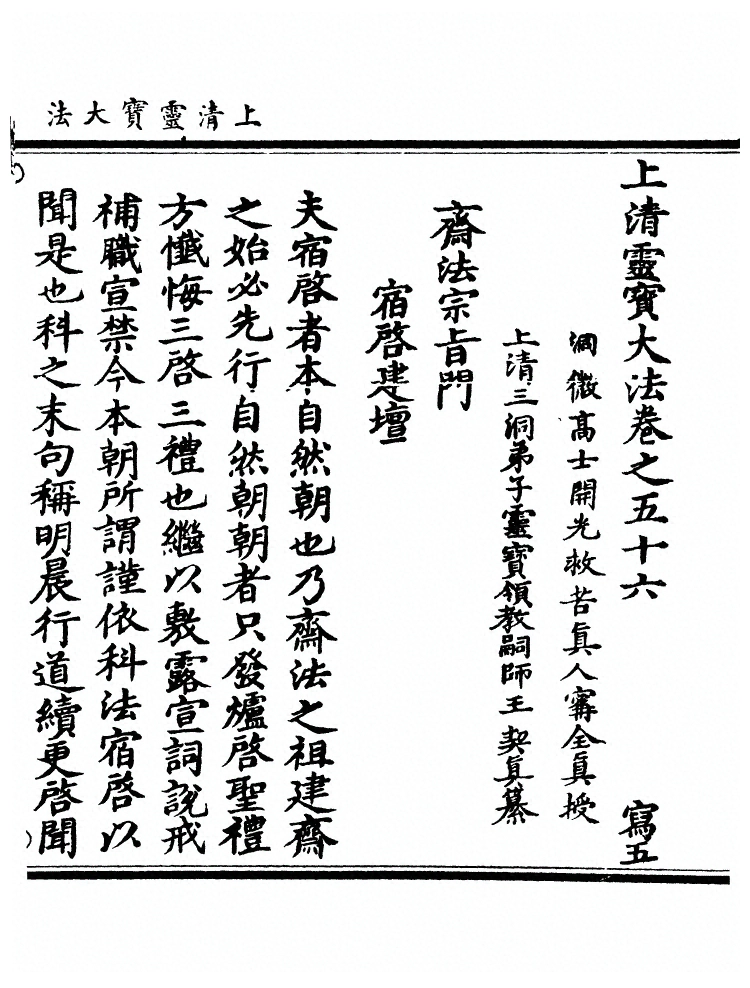 上清靈寶大法
上清靈寶大法卷之五十六 寫五
洞微高士開光救苦眞人甯全眞授
上清三洞弟子靈寶領教嗣師王契眞纂
齋法宗旨門
宿啓建壇
夫宿啓者本自然朝也乃齋法之祖建齋
之始必先行自然朝朝者只發爐啓聖禮
方懺悔三啓三禮也繼以敷露宣詞說戒
補職宣禁今本朝所謂謹依科法宿啓以
聞是也科之末句稱明晨行道續更啓聞